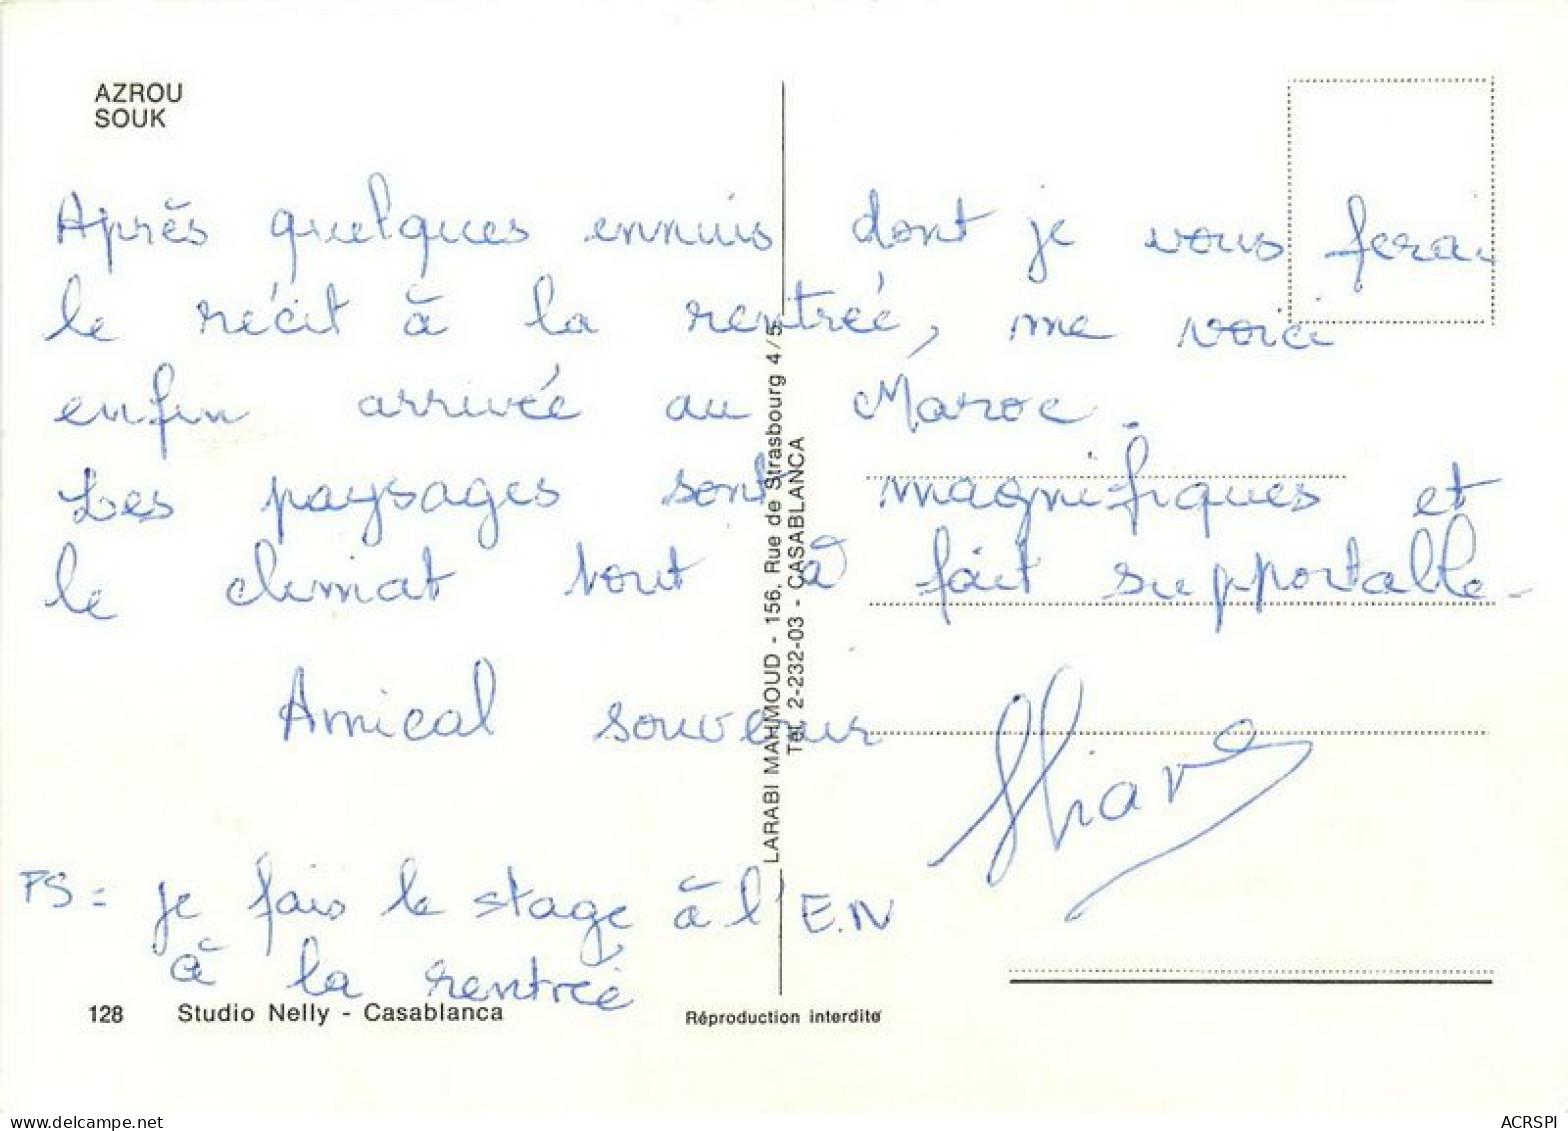 AZROU
SOUK
Après quelques ennuis dont je vous ferai
le récit à la rentrée, me voici
enfin arrivée au Maroc.
Les paysages sont magnifiques et
le climat tout à fait supportable.
Amical souvenir
PS = je fais le stage à l'E.N
à la rentrée
LARABI MAHMOUD - 156, Rue de Strasbourg 4/5
Tél. 2-232-03 - CASABLANCA
128 Studio Nelly - Casablanca
Réproduction interdite
delcampe.net
ACRSPI